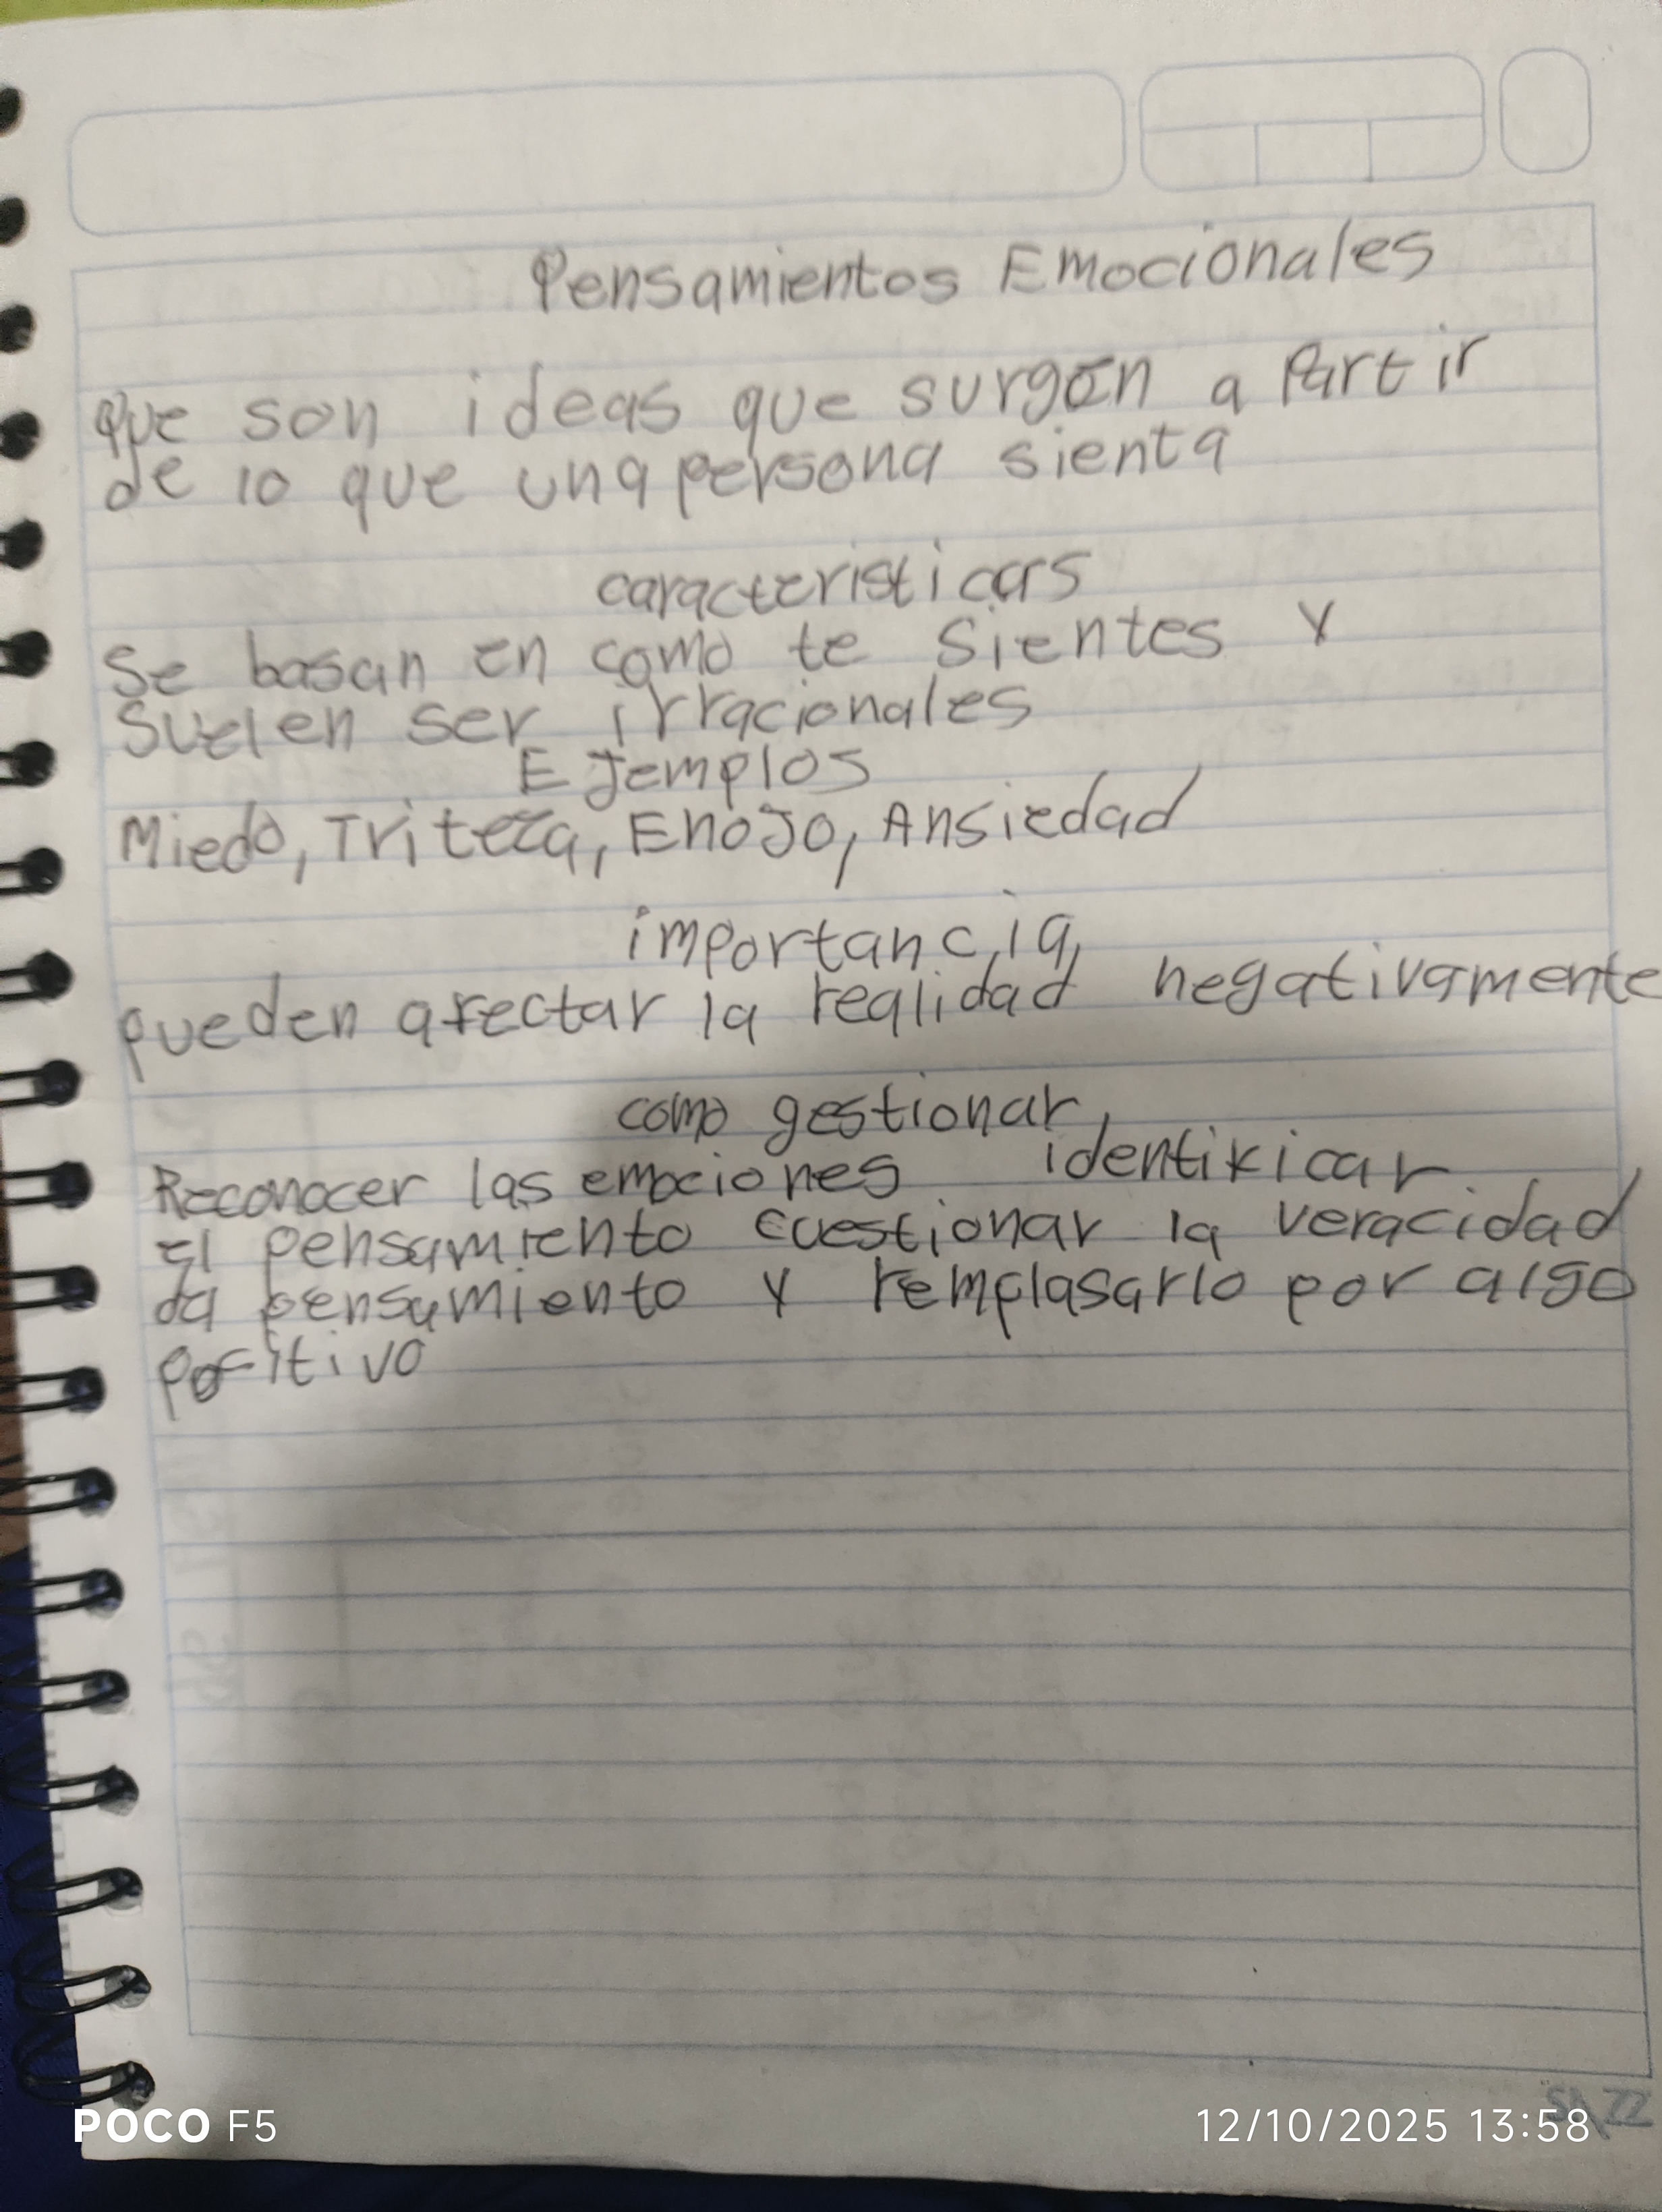 Pensamientos Emocionales
Que son ideas que surgen a Partir
de lo que una persona sienta
caracteristicas
Se basan en como te Sientes y
Suelen ser irracionales
Ejemplos
Miedo, Triteza, Enojo, Ansiedad
importancia
pueden afectar la realidad negativamente
como gestionar
Reconocer las emociones identificar
El pensamiento cuestionar la veracidad
da pensamiento y remplasarlo por algo
positivo
POCO F5
12/10/2025 13:58